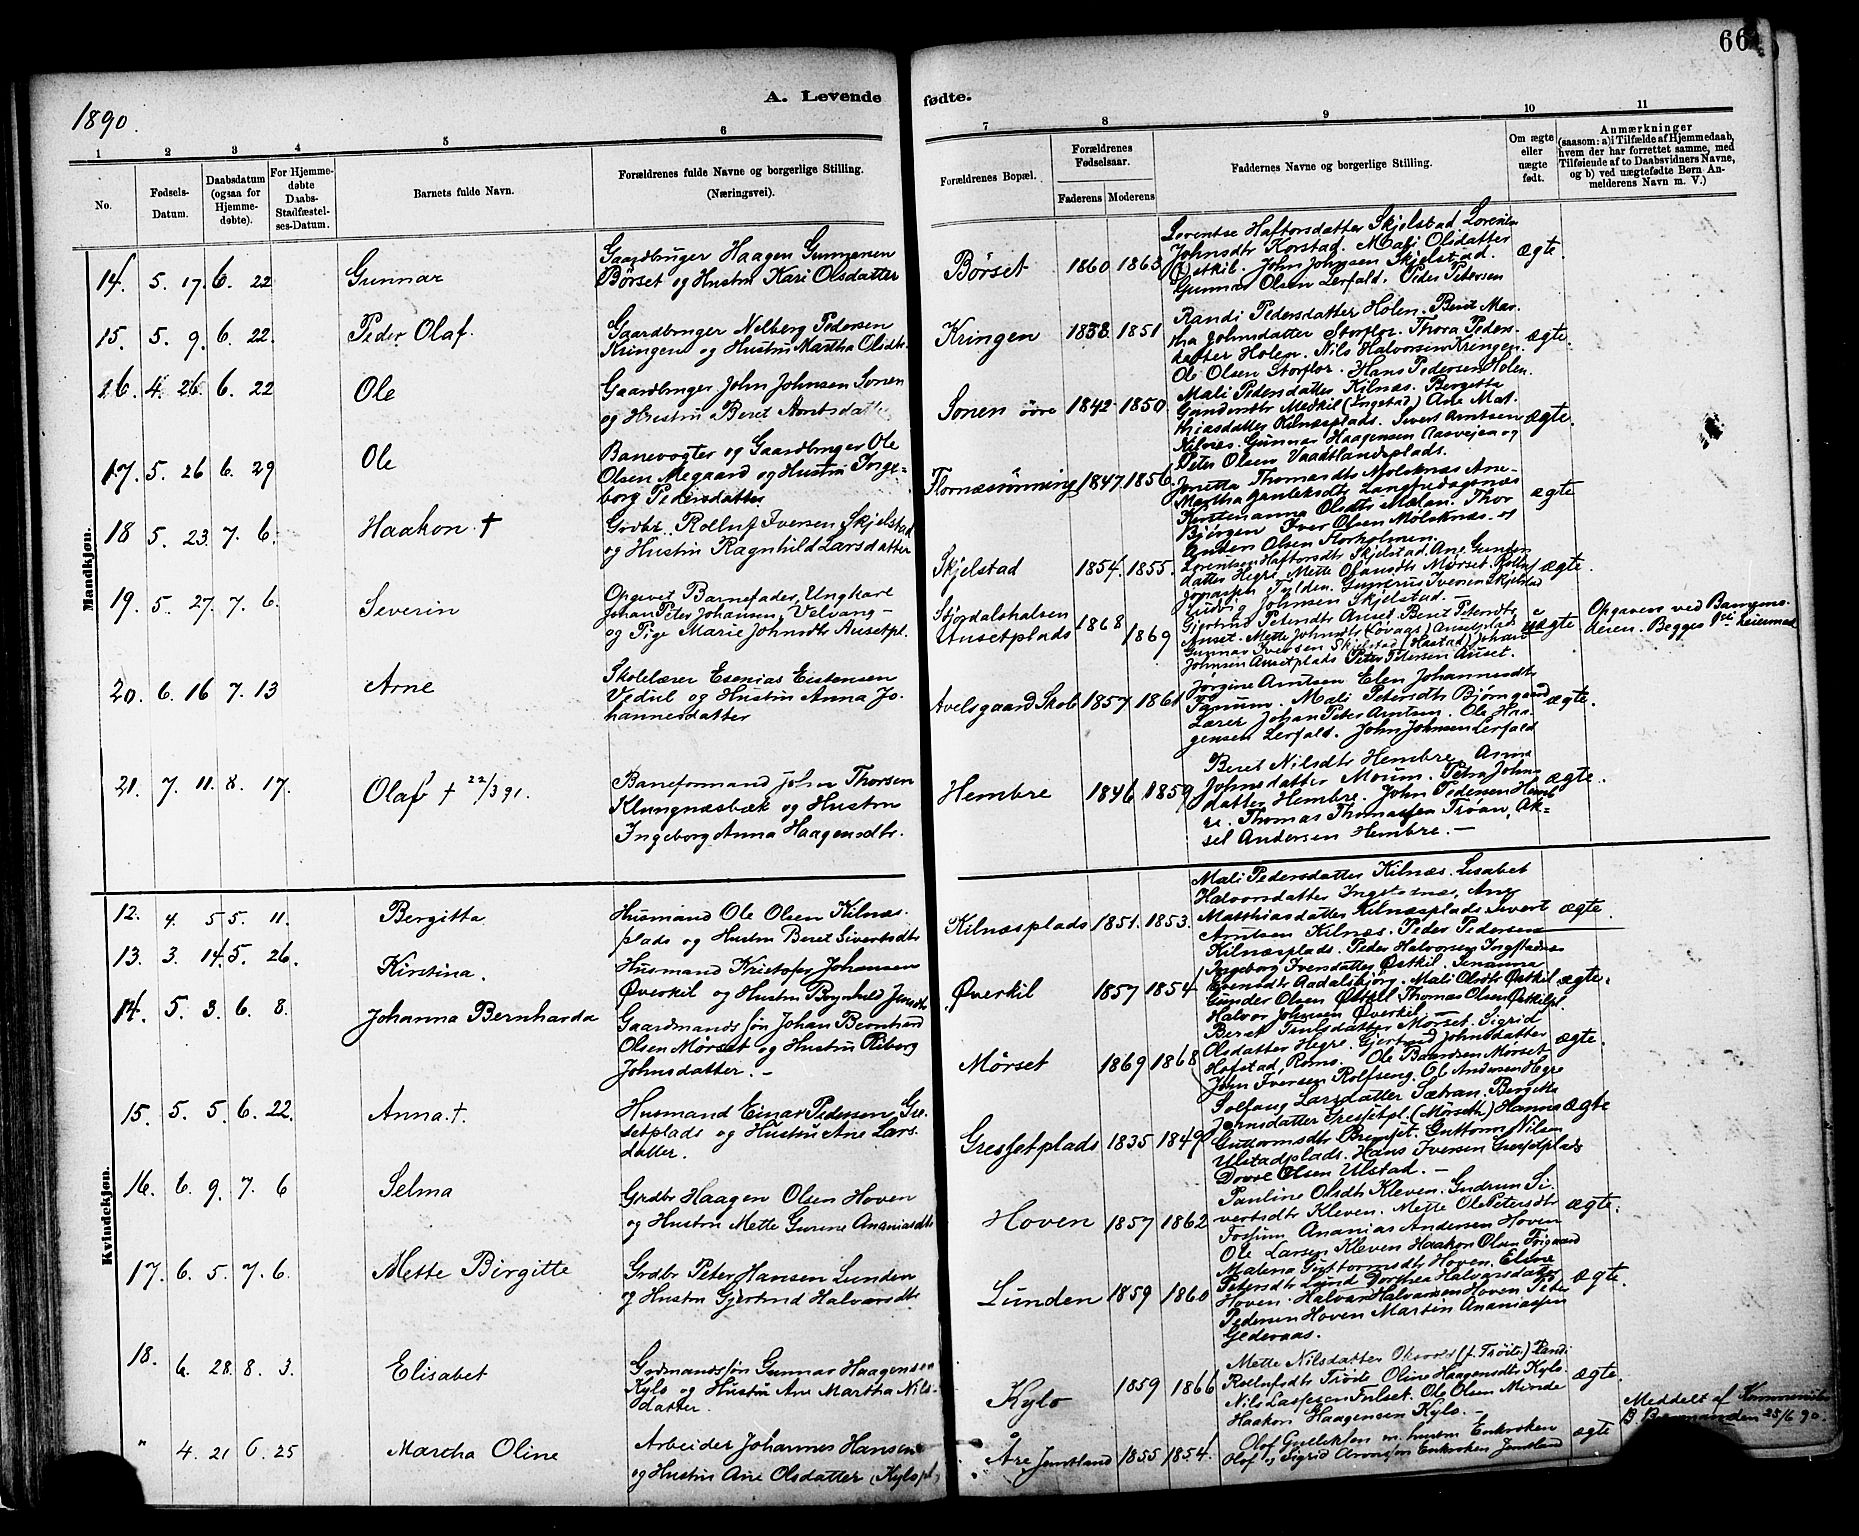 66
1890.
A. Levende fødte.
1 2 3 4 5 6 7 8 9 10 11
No.
Fødsels-Datum.
Daabsdatum (ogsaa for Hjemmedøbte).
For Hjemmedøbte Daabs-Stadfæstelses-Datum.
Barnets fulde Navn.
Forældrenes fulde Navne og borgerlige Stilling. (Næringsvei).
Forældrenes Bopæl.
Forældrenes Fødselsaar.
Faderens Moderens
Faddernes Navne og borgerlige Stilling.
Om ægte eller uægte født.
Anmærkninger
(saasom: a) i Tilfælde af Hjemmedaab, hvem der har forrettet samme, med Tilføiende af to Daabsvidners Navne, og b) ved uægtefødte Børn Anmelderens Navn m. V.)
Mandkjøn.
14. 5. 17. 6. 22 Gunnar
Gaardbruger Haagen Gunnersen
Børset og Hustru Kari Olsdatter
Børset 1860 1863
Lorentse Haftorsdatter Skjelstad Lorentse
Johnsdtr Korstad. Mali Olsdatter
Østkil. John Johnsen Skjelstad.
Gunnar Olsen Lerfald. Peder Petersen
ægte.
15. 5. 9. 6. 22. Peder Olaf.
Gaardbruger Nelberg Pedersen
Kringen og Hustru Martha Olsdtr.
Kringen 1858. 1851
Randi Pedersdatter Holen. Berit Mar-
tha Johnsdatter Storflor. Thora Peders-
datter Holen. Nils Halvorsen Kringen.
Ole Olsen Storflor. Hans Pedersen Holen.
ægte.
16. 4. 26. 6. 22 Ole
Gaardbruger John Johnsen Sonen
og Hustru Beret Arntsdatter
Sonen øvre 1842 1850
Mali Pedersdatter Kilnæs. Bergitta
Gundersdtr Medkil (Ingstad) Ane Mat-
thiasdatter Kilnæsplads. Sivert Arntsen
Kilnes. Gunnar Haagensen Aasvejen og
Peter Olsen Vaadtlandsplads.
ægte.
17. 5. 26 6. 29 Ole
Banevogter og Gaardbruger Ole
Olsen Megaard og Hustru Inge-
borg Pedersdatter
Flornæsrønning 1847. 1856
Jonetta Thomasdtr Moloknæs Ane-
Martha Langlandsnæs
Kerstenanna Olsdtr Mælan. Thor
Bjørgen Iver Olsen Moloknæs. og
Anders Olsen Florholmen.
ægte
18 5. 23. 7. 6. Haakon †
Grdbr. Rolluf Iversen Skjelstad
og Hustru Ragnhild Larsdatter
Skjelstad 1854. 1855.
Lorentsen Haftorsdtr Skjelstad. Ane Gunders
datter Hegre Mette Olausdtr Mørset. Rolluf
Jonassen Fylden. Gunerus Iversen Skjelstad
Ludvig Johnsen Skjelstad. —
ægte.
19. 5. 27. 7. 6. Severin
Opgivet Barnefader, Ungkarl
Johan Peter Johansen, Velvang-
og Pige Marie Johnsdtr Ausetpl.
Stjørdalshalsen
Ausetplads 1868 1869
Gjertrud Petersdtr Auset. Beret Petersdtr
Auset. Mette Johnsdtr (Lovaas) Ausetplads
Gunnar Iversen Skjelstad (Hastad) Johan
Johnsen Ausetplads Peter Petersen Auset.
uægte
Opgaven ved Barnemo-
deren. Begges 1ste Leiermaal
20. 6. 16 7. 13 Arne
Skolelærer Esenias Eistensen
Vedul og Hustru Anna Jo-
hannesdatter
Avelsgaard Skole 1857 1861
Jørgine Arntsen Elen Johannesdtr
Fanum. Mali Petersdtr Bjørngaard
Lærer Johan Peter Arntsen. Ole Haa-
gensen Lerfald. John Johnsen Lerfald
ægte.
21. 7. 11. 8. 17. Olaf † 22/3 91.
Baneformand John Thorsen
Klungnæsbæk og Hustru
Ingeborg Anna Haagensdtr.
Hembre 1846 1859
Beret Nilsdtr Hembre. Anna
Johnsdatter Moum. Petra Johns
datter Hembre. John Pedersen Hemb
re. Thomas Thomassen Trøan, Ak-
sel Andersen Hembre. —
ægte.
Kvindekjøn.
12. 4. 5 5. 11. Bergitta
Husmand Ole Olsen Kilnæs-
plads og Hustru Beret Sivertsdtr
Kilnæsplads 1851. 1853.
Mali Pedersdatter Kilnæs. Lisabet
Halvorsdatter Ane
Matthiasdatter Kilnæsplads. Sivert
Arntsen Kilnæs. Peder Pedersen
Kilnæsplads. Peder Halvorsen
ægte.
13. 3. 14. 5. 26. Kirstina.
Husmand Kristofer Johansen
Øverkil og Hustru Brynhild Jensdtr
Øverkil 1857 1854
Ingeborg Iversdatter Østkil. Jonanna
Evensdtr Aadalsbjørg. Mali Olsdtr Østkil
Gunder Olsen Østkil Thomas Olsen Østkilpl.
Halvor Johnsen Øverkil. —
ægte.
14. 5. 3. 6. 8 Johanna Bernharda
Gaardmandssøn Johan Bernhard
Olsen Mørset og Hustru Riborg
Johnsdatter. —
Mørset 1869 1868
Beret Trulsdatter Mørset. Sigrid
Olsdatter Hegre. Gjertrud Johnsdatter
Hofstad Roms. Ole Baardsen Mørset
John Iversen Rolfseng. Ole Andersen Hegre
ægte.
15. 5. 5. 6. 22. Anna. †.
Husmand Einar Pedersen Gre-
setplads og Hustru Ane Lars-
datter.
Gressetplads 1835 1849
Solfaug Larsdatter Sætran. Bergitta
Johnsdatter Gressetpl. (Mørsdtr) Hanna
Guttormsdtr Bremset. Guttorm Nilsen
Ulstadplads. Hans Iversen Gressetplads
Dovre Olsen Ulstad. —
ægte
16. 6. 9. 7. 6 Selma
Grdbr Haagen Olsen Hoven
og Hustru Mette Gurine Ananiasdtr
Hoven 1857 1862
Pauline Olsdtr Kleven. Gudrun Si-
vertsdtr Kleven. Mette Ole Petersdtr
Fossum Ananias Andersen Hoven
Ole Larsen Kleven Haakon Olsen
ægte.
17. 6. 5. 7. 6. Mette Birgitte
Grdbr Peter Hansen Lunden
og Hustru Gjertrud Halvorsdtr
Lunden 1859 1860
Malena Guttormsdtr Hoven. Eline
Petersdtr Lund Dorthea Halvorsdatter
Hoven. Halvar Halvorsen Hoven, Peter
Pedersen Hoven Martin Ananiassen
Gederaas.
ægte.
18. 6. 28. 8. 3. Elisabet
Grdmandssøn Gunnar Haagensen
Kylo og Hustru Ane Martha Nils-
datter.
Kylo 1859 1866
Mette Nilsdatter (f. Trøite) Randi
Rollufsdtr Trøite. Oline Haagensdtr Kylo.
Nils Lassesen Fulset. Ole Olsen Minde
Haakon Haagensen Kylo. —
ægte.
" 4. 21 6. 25 Martha Oline
Arbeider Johannes Hansen
og Hustru Ane Olsdatter (Kylopl.)
Åre Jemtland 1855 1854
Olof Gullikson m. hustru Enkroken
Olof og Sigrid Aronsson Enkroken Jemtland
ægte
Meddelt af
25/6 90.